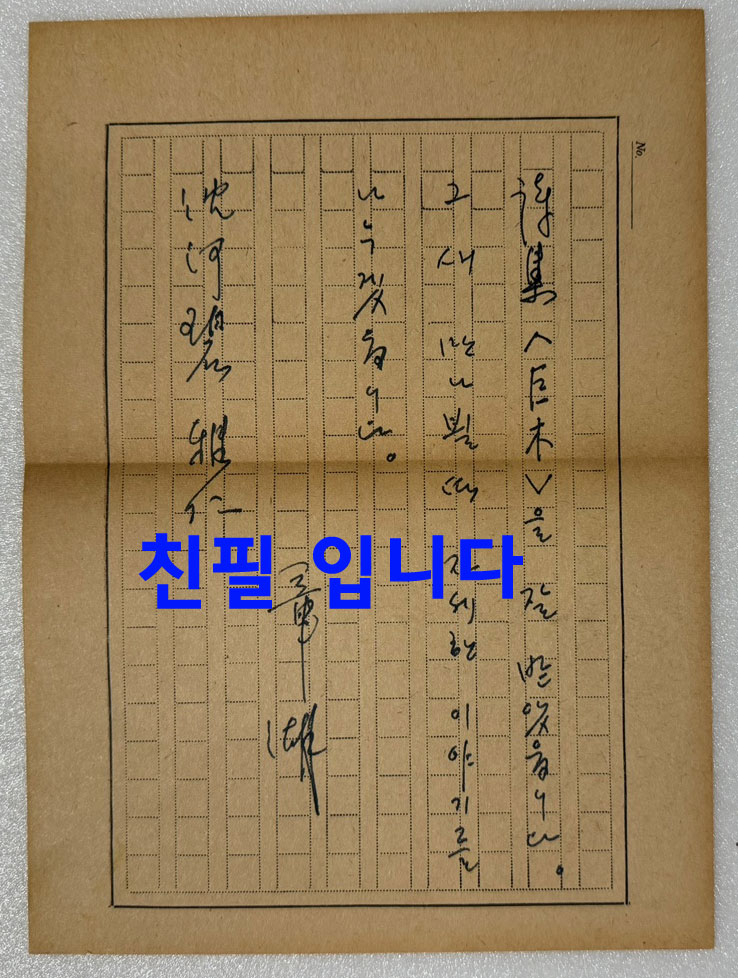 No
詩集〈巨木〉을 잘 받았읍니다。
그새 만나뵐 때 자세한 이야기를
나누겠읍니다。
沈河碧 雅仁
친필 입니다